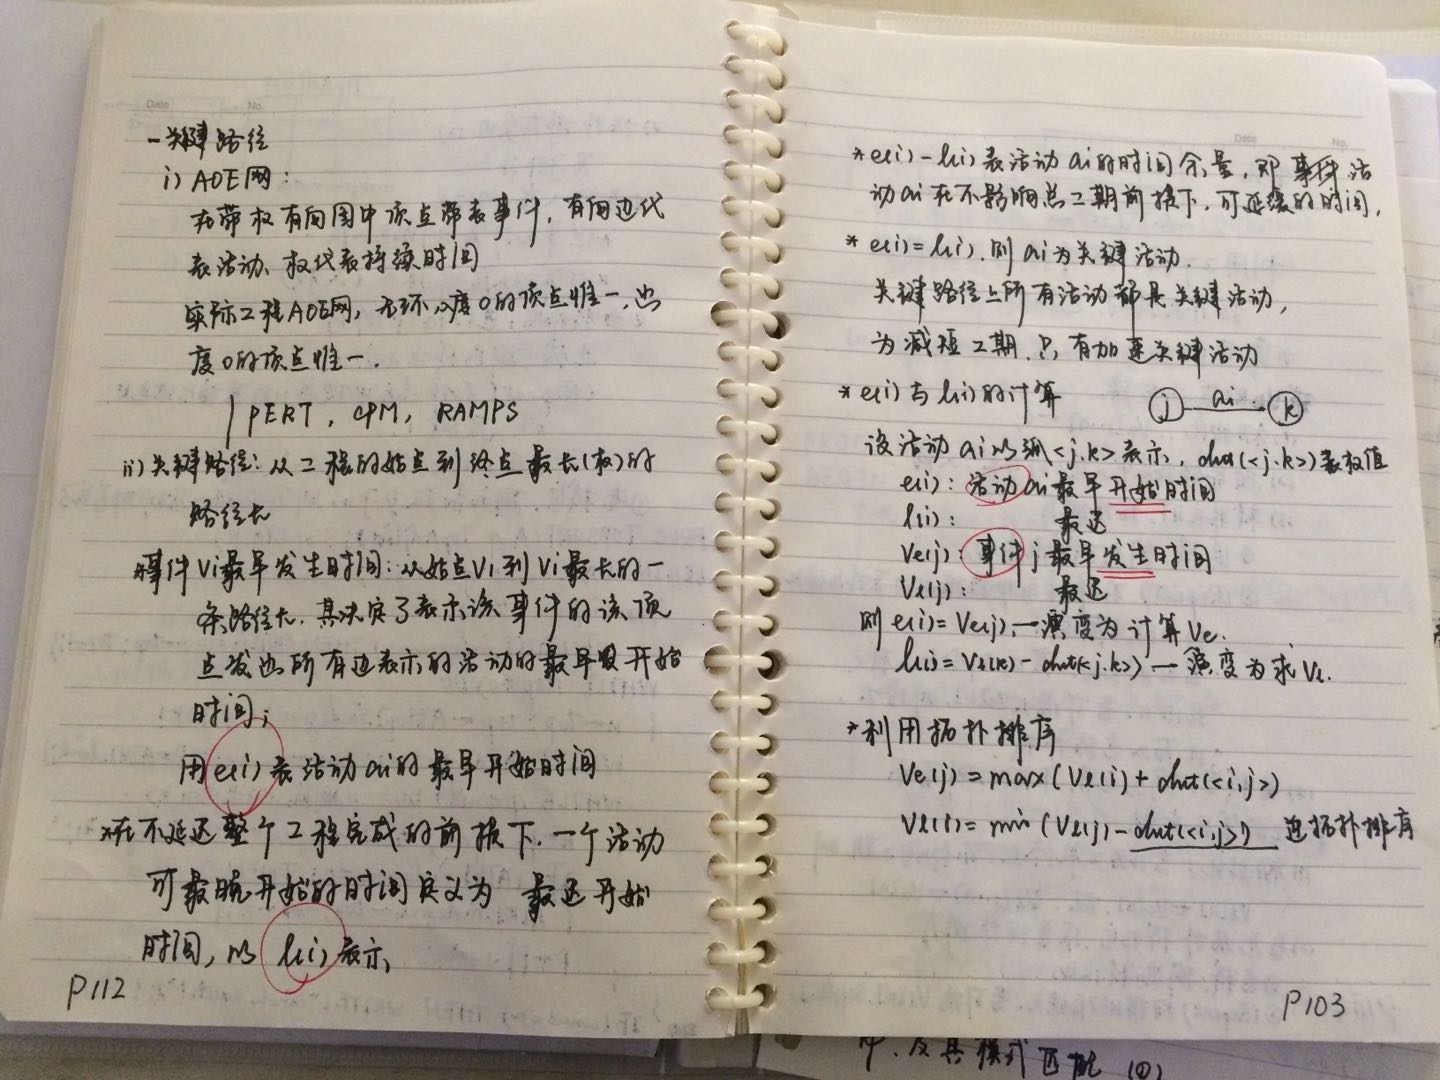 Date No.
一关键路径
i) AOE网:
在带权有向图中顶点带表事件, 有向边代
表活动、权代表持续时间
实际工程AOE网, 无环, 入度0的顶点惟一, 出
度0的顶点惟一.
PERT, CPM, RAMPS
ii) 关键路径: 从工程的始点到终点最长(权)的
路径长
*事件Vi最早发生时间: 从始点V1到Vi最长的一
条路径长, 其决定了表示该事件的该顶
点发出所有边表示的活动的最早开始
时间;
用e(i)表活动ai的最早开始时间
*在不延迟整个工程完成的前提下, 一个活动
可最晚开始的时间定义为 最迟开始
时间, 以 l(i)表示
P112
Date No.
*e(i)-l(i)表活动ai的时间余量, 即事件活
动ai在不影响总工期前提下, 可延缓的时间,
*e(i)=l(i), 则ai为关键活动.
关键路径上所有活动都是关键活动,
为减短工期, 只有加速关键活动
*e(i)与l(i)的计算 j ai k
设活动ai以弧<j,k>表示, dut(<j,k>)表权值
e(i): 活动ai最早开始时间
l(i): 最迟
Ve(j): 事件j最早发生时间
Vl(j): 最迟
则e(i)=Ve(j), 一演变为计算Ve.
l(i)=Vl(k)-dut(<j,k>) 一演变为求Vl.
*利用拓扑排序
Ve(j)=max(Ve(i)+dut(<i,j>)
Vl(i)=min(Vl(j)-dut(<i,j>) 逆拓扑排序
P103
及其模式匹配 (四)